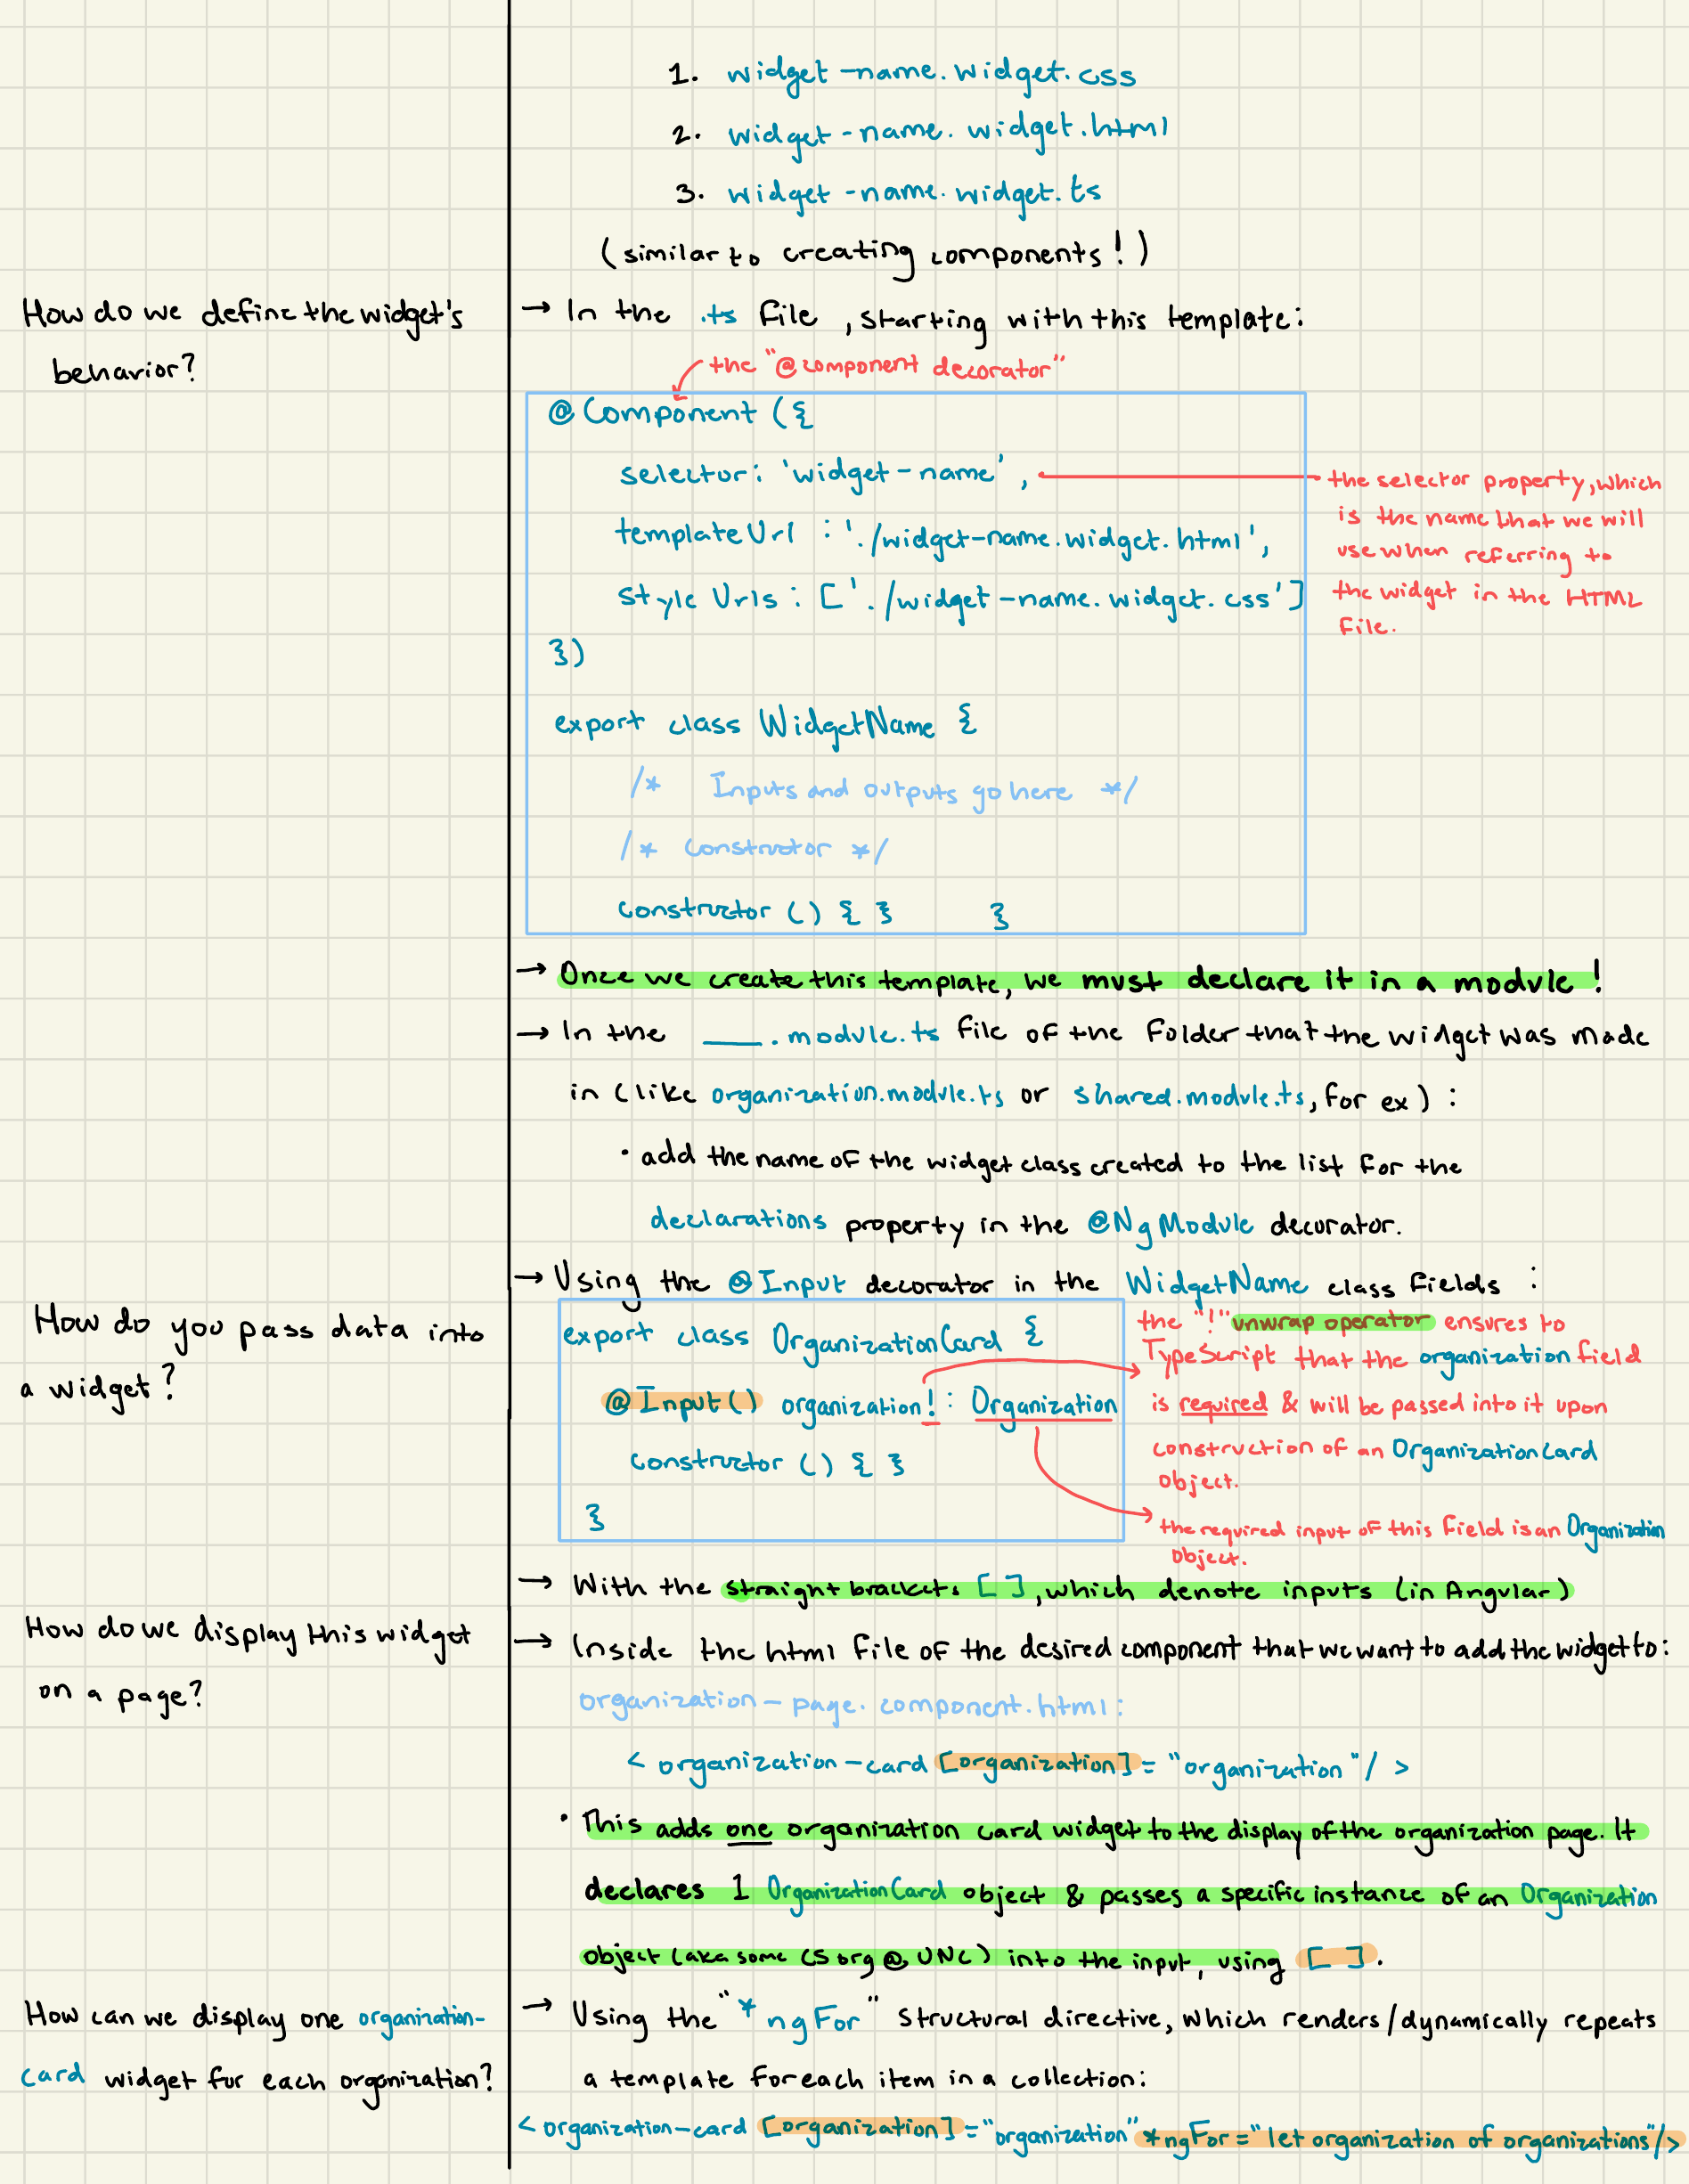 1. widget-name.widget.css
2. widget-name.widget.html
3. widget-name.widget.ts
(similar to creating components!)
How do we define the widget's
behavior?
→ In the .ts file, starting with this template:
the "@component decorator"
@Component ({
selector: 'widget-name',
templateUrl: './widget-name.widget.html',
styleUrls: ['./widget-name.widget.css']
})
export class WidgetName {
/* Inputs and outputs go here */
/* Constructor */
constructor () { } }
the selector property, which
is the name that we will
use when referring to
the widget in the HTML
file.
→ Once we create this template, we must declare it in a module!
→ In the ___.module.ts file of the folder that the widget was made
in (like organization.module.ts or shared.module.ts, for ex):
• add the name of the widget class created to the list for the
declarations property in the @NgModule decorator.
How do you pass data into
a widget?
→ Using the @Input decorator in the WidgetName class fields:
export class OrganizationCard {
@Input() organization!: Organization
constructor () { }
}
the "!" unwrap operator ensures to
TypeScript that the organization field
is required & will be passed into it upon
construction of an OrganizationCard
object.
the required input of this field is an Organization
object.
→ With the straight brackets [ ], which denote inputs (in Angular)
How do we display this widget
on a page?
→ Inside the html file of the desired component that we want to add the widget to:
organization-page.component.html:
<organization-card [organization]="organization"/>
• This adds one organization card widget to the display of the organization page. It
declares 1 OrganizationCard object & passes a specific instance of an Organization
object (aka some CS org @ UNC) into the input, using [ ].
How can we display one organization-
card widget for each organization?
→ Using the "*ngFor" structural directive, which renders/dynamically repeats
a template for each item in a collection:
<organization-card [organization]="organization" *ngFor="let organization of organizations"/>